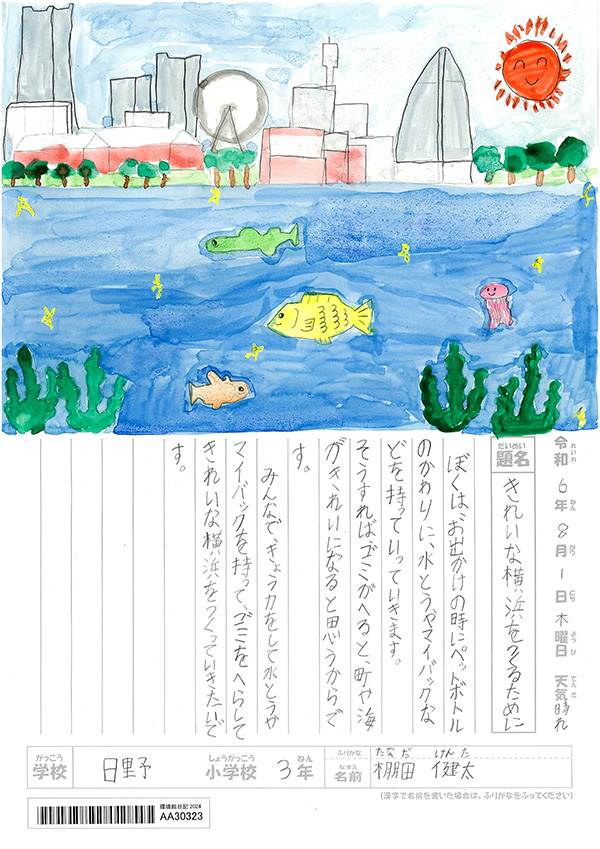 令和6年8月1日木曜日 天気晴れ
れいわ ねん がつ にち ようび てんき
だいめい
題名 きれいな横浜をつくるために
ぼくは、お出かけの時にペットボトル
のかわりに、水とうやマイバックな
どを持っていっていきます。
そうすれば、ゴミがへると、町や海
がきれいになると思うからで
す。
みんなで、きょう力をして水とうや
マイバックを持って、ゴミをへらして
きれいな横浜をつくっていきたいで
す。
がっこう しょうがっこう ねん
学校 日野 小学校 3年
ふりがな たなだ けんた
なまえ
名前 棚田 健太
(漢字で名前を書いた場合は、ふりがなをふってください)
環境絵日記 2024
AA30323